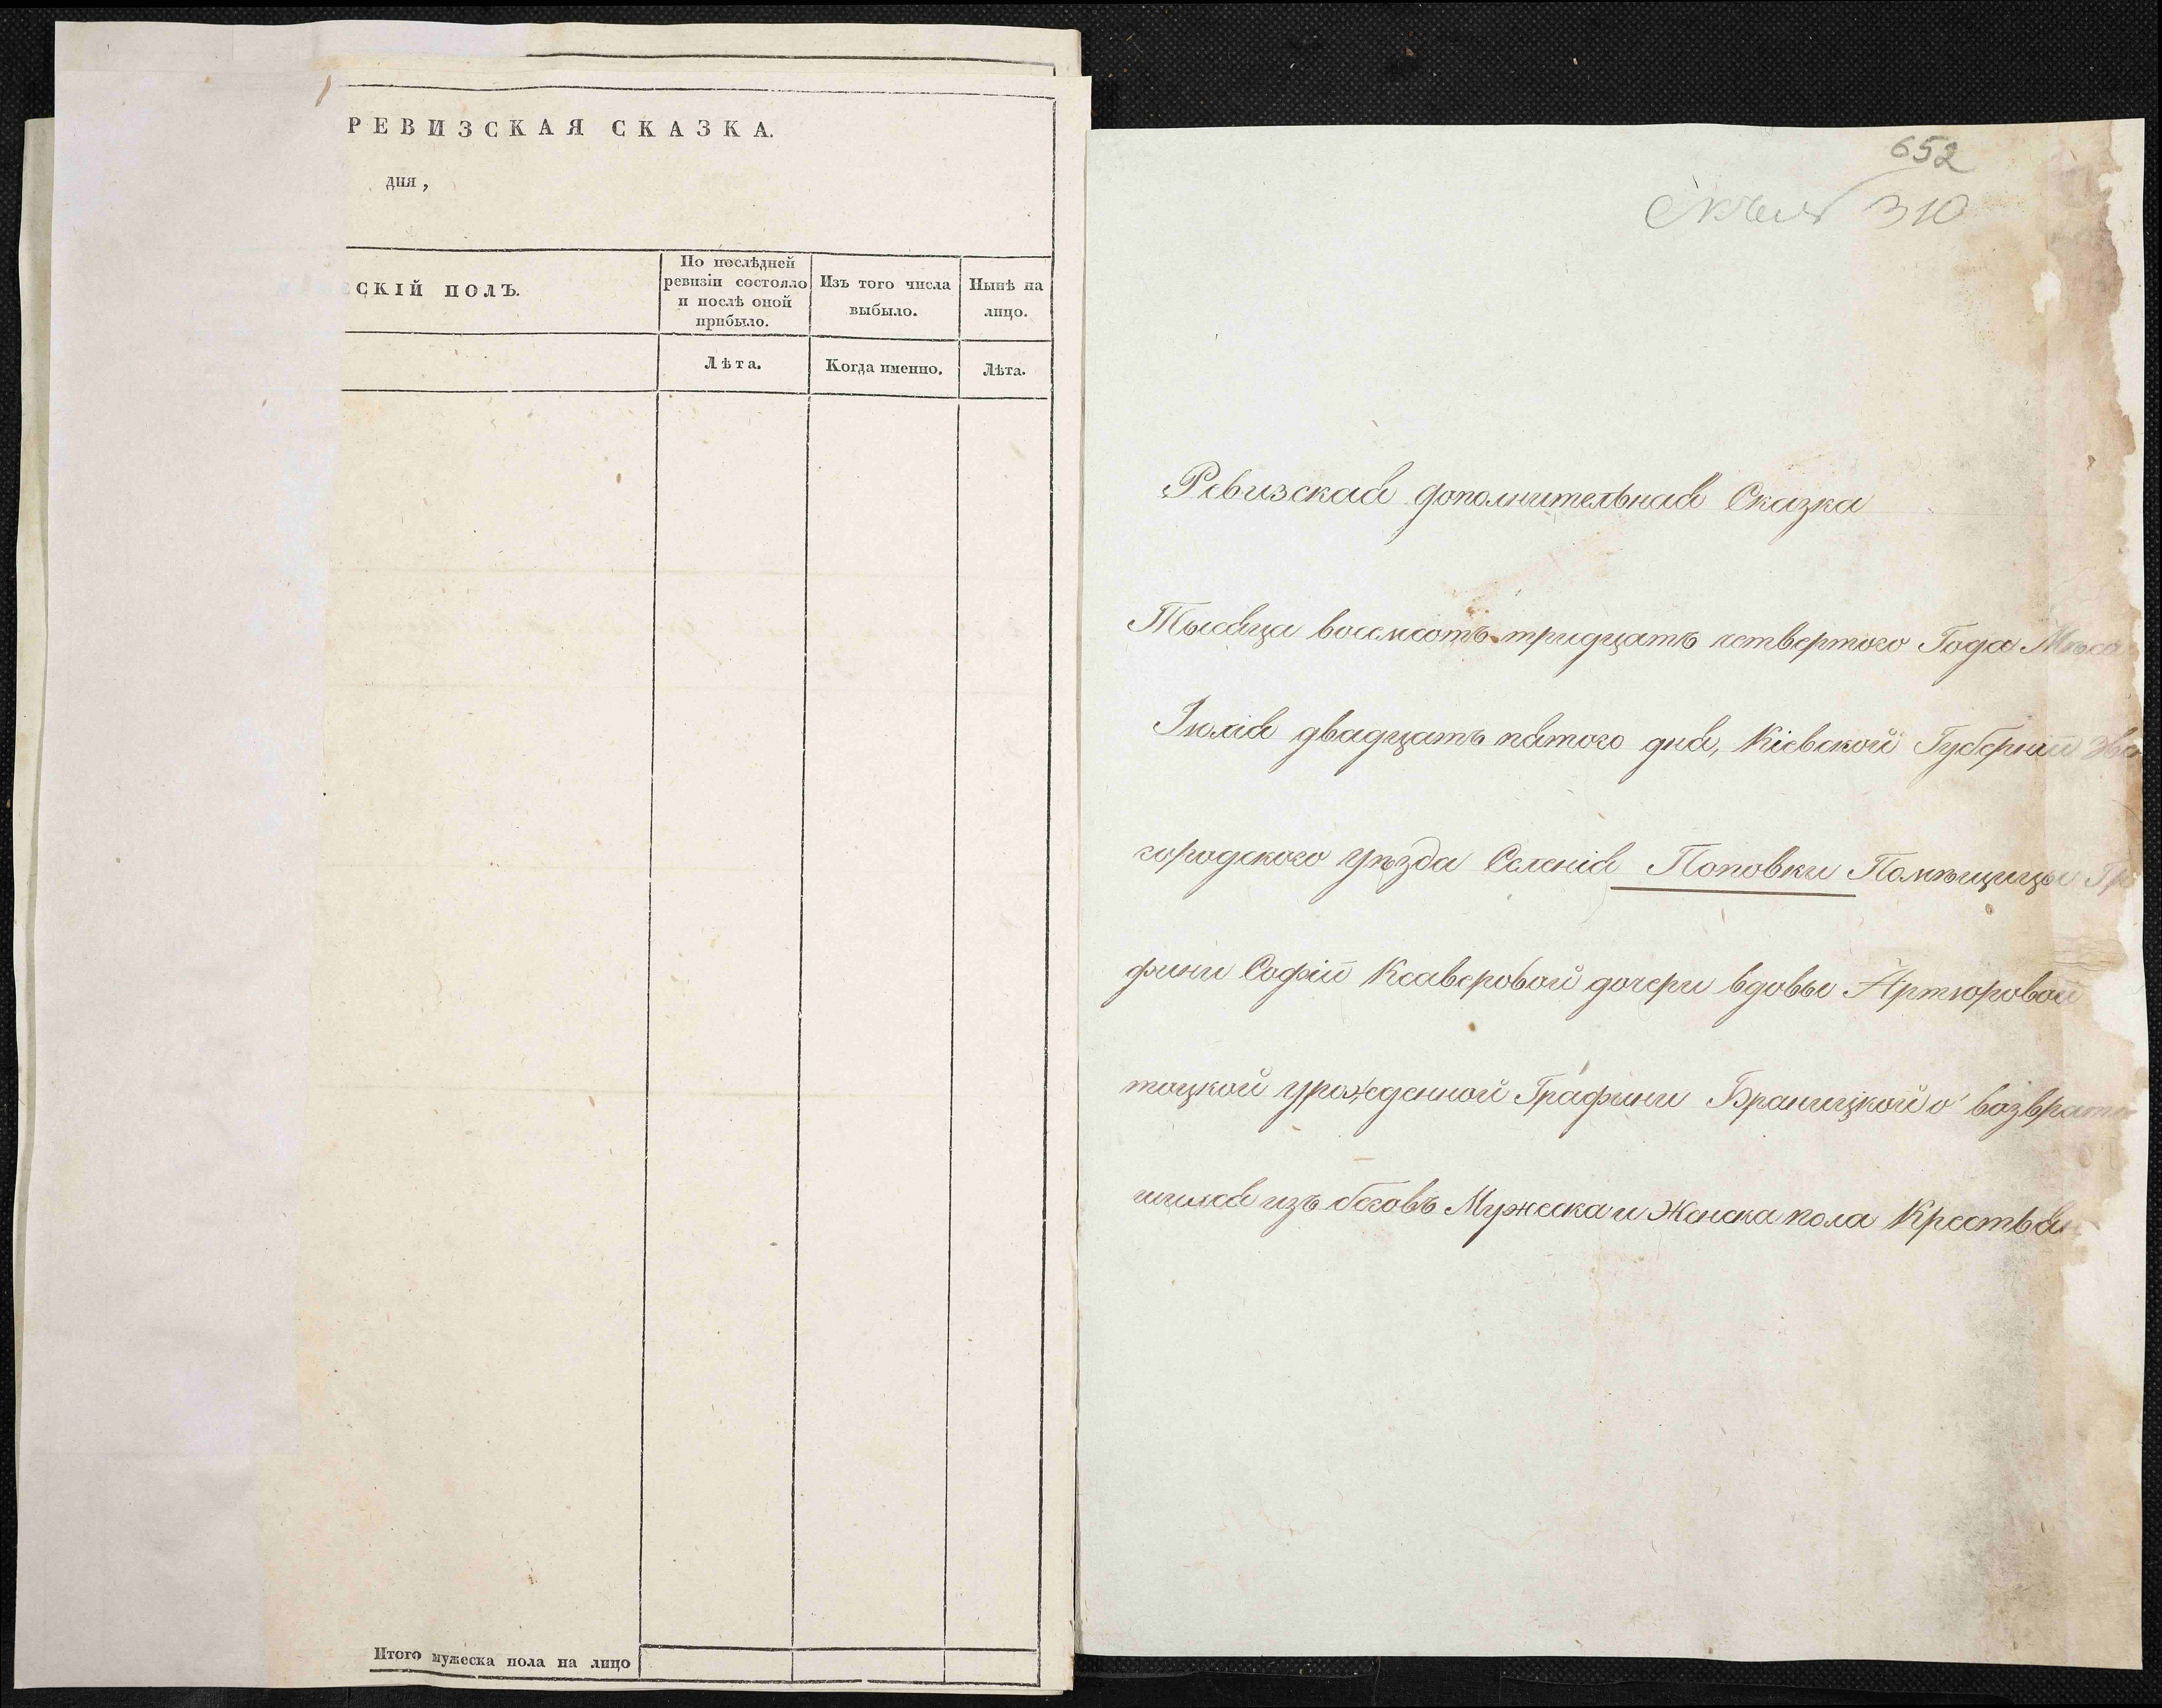 РЕВИЗСКАЯ СКАЗКА.
дня,
СКІЙ ПОЛЪ.
По послѣдней
ревизіи состояло
и послѣ оной
прибыло.
Изъ того числа
выбыло.
Нынѣ на
лицо.
Лѣта.
Когда именно.
Лѣта.
Итого мужеска пола на лицо
652
310
Ревизская дополнительная Сказка
Тысяща восемсотъ тридцать четвертого Года Мѣся
Іюлія двадцать пятого дня, Кіевской Губерніи Зве
городского уѣзда Селенія Поповки Помѣщицы Гр
фини Софіи Ксаверовой дочери вдовы Артюровой
тоцкой урожденной Графини Браницкой о возврати
шихся изъ бѣговъ Мужеска и Женска пола Крестьян